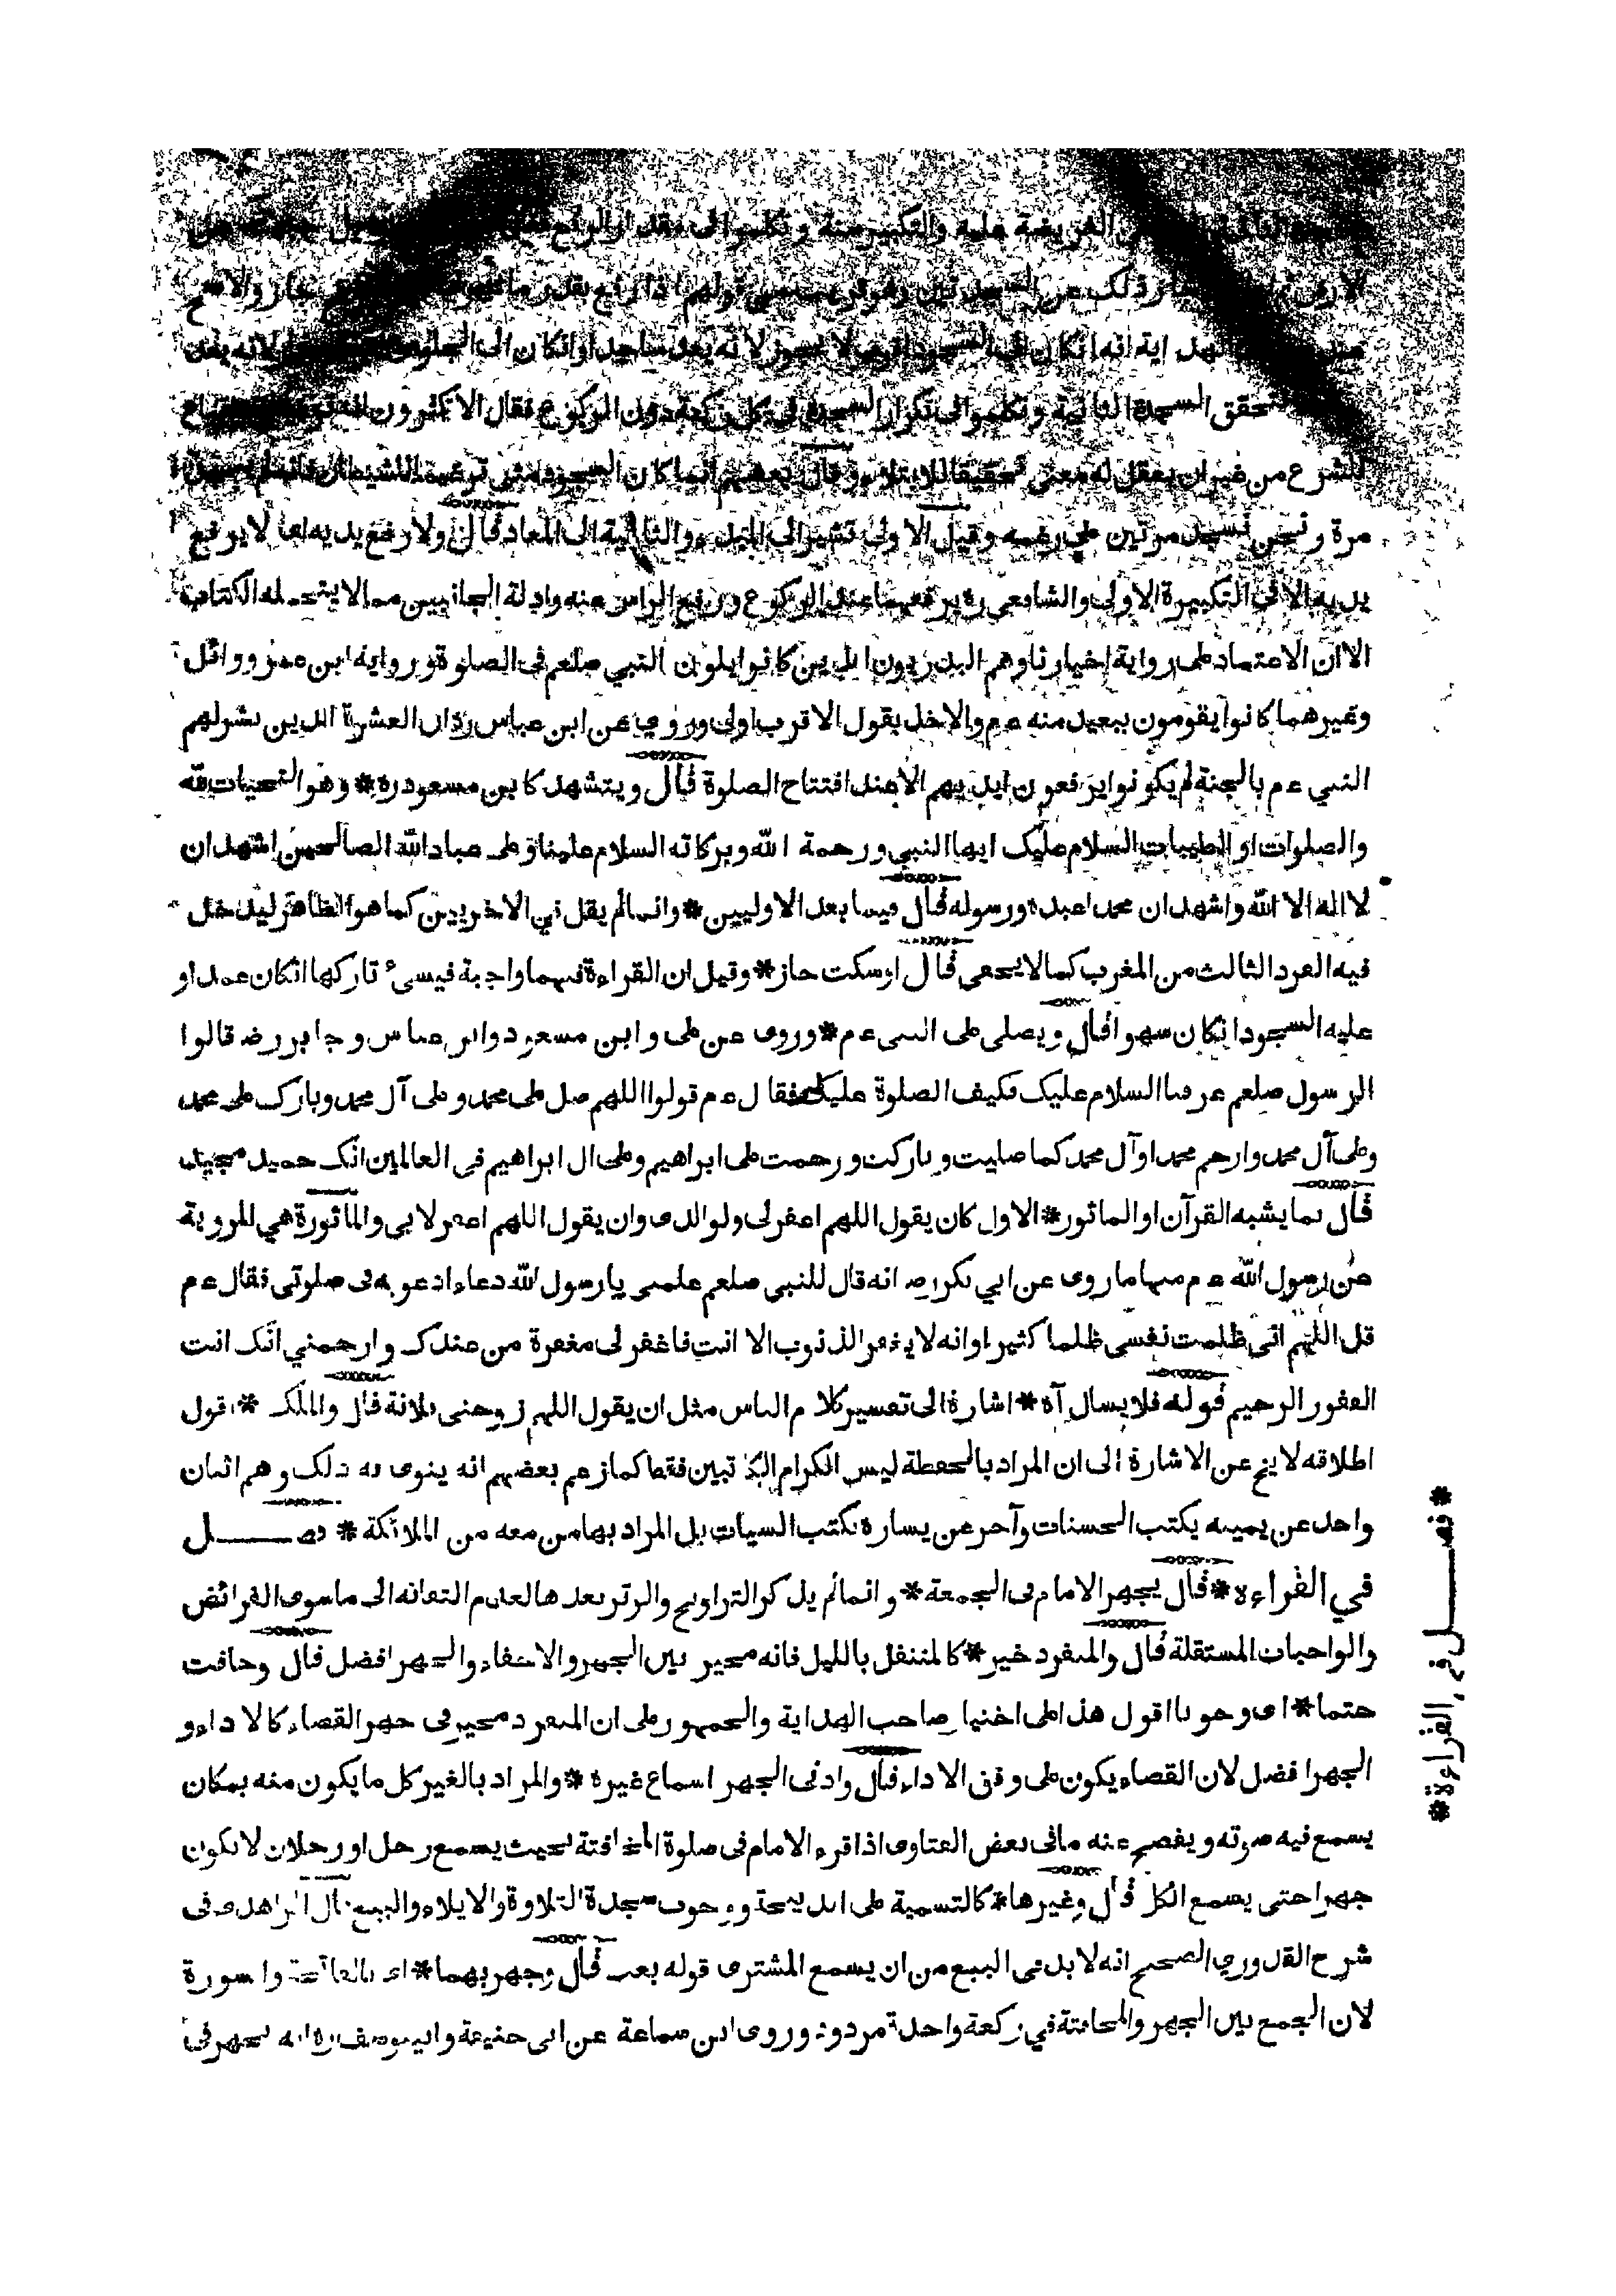 الفريضة عليه والتكبير منه وتكلموا فى مقدار الرفع
الارض ذلك عن السجدتين قولهم اذا رفع بقدر ما والاصح
الهداية انه انكان الى السجود اقرب لا يجوز لانه يعد ساجدا وانكان الى الجلوس لانه يعد
تحقق السجدة الثانية وتكلموا فى تكرار السجدة فى كل ركعة دون الركوع فقال الاكثرون
للشرع من غير ان يعقل له معنى تحقيقا للابتلاء وقال بعضهم انما كان السجود مثنى ترغيما للشيطان
مرة ونحن نسجد مرتين على رغمه وقيل الاولى تشير الى المبدء والثانية الى المعاد قال ولا رفع يديه اى لا يرفع
يديه الا فى التكبيرة الاولى والشافعى ره يرفعهما عند الركوع ورفع الراس منه وادلة الجانبين مما لا يتحمله الكتاب
الا ان الاعتماد على رواية اخيارنا وهم البدريون الذين كانوا يلون النبي صلعم فى الصلوة ورواية ابن عمر ووائل
وغيرهما كانوا يقومون ببعيد منه عم والاخذ بقول الاقرب اولى وروي عن ابن عباس رض ان العشرة الذين بشر لهم
النبي عم بالجنة لم يكونوا يرفعون ايديهم الا عند افتتاح الصلوة قال ويتشهد كابن مسعود ره * وهو التحيات لله
والصلوات والطيبات السلام عليك ايها النبي ورحمة الله وبركاته السلام علينا وعلى عباد الله الصالحين اشهد ان
لا اله الا الله واشهد ان محمدا عبده ورسوله قال فيما بعد الاوليين * وانما لم يقل في الاخريين كما هو الظاهر ليدخل
فيه الفرد الثالث من المغرب كما لا يخفى قال او سكت جاز * وقيل ان القراءة فيهما واجبة فيسىء تاركها انكان عمدا و
عليه السجود انكان سهوا قال ويصلى على النبى عم * وروى عن على وابن مسعود وابن عباس وجابر رض قالوا
الرسول صلعم عرفنا السلام عليك فكيف الصلوة عليك فقال عم قولوا اللهم صل على محمد وعلى آل محمد وبارك على محمد
وعلى آل محمد وارحم محمدا وآل محمد كما صليت وباركت ورحمت على ابراهيم وعلى ال ابراهيم فى العالمين انك حميد مجيد
قال بما يشبه القرآن او الماثور * الاول كان يقول اللهم اغفر لى ولوالدى وان يقول اللهم اغفر لابى والماثورة هي المروية
عن رسول الله عم منها ما روى عن ابي بكر رض انه قال للنبي صلعم علمنى يا رسول الله دعاء ادعو به فى صلوتى فقال عم
قل اللهم انى ظلمت نفسى ظلما كثيرا وانه لا يغفر الذنوب الا انت فاغفر لى مغفرة من عندك وارحمني انك انت
الغفور الرحيم قوله فلا يسال آه * اشارة الى تفسير كلام الناس مثل ان يقول اللهم زوجنى فلانة قال والملك * اقول
اطلاقه لا يخ عن الاشارة الى ان المراد بالحفظة ليس الكرام الكاتبين فقط كما زعم بعضهم انه ينوى به ذلك وهم اثنان
واحد عن يمينه يكتب الحسنات وآخر عن يساره يكتب السيات بل المراد بها من معه من الملائكة * فصل
في القراءة * قال يجهر الامام فى الجمعة * وانما لم يذكر التراويح والوتر بعدها لعدم التفاته الى ما سوى الفرائض
والواجبات المستقلة قال والمنفرد خير * كالمتنفل بالليل فانه مخير بين الجهر والاخفاء والجهر افضل قال وخافت
حتما * اى وجوبا اقول هذا على اختيار صاحب الهداية والجمهور على ان المنفرد مخير فى جهر القضاء كالاداء و
الجهر افضل لان القضاء يكون على وفق الاداء قال وادنى الجهر اسماع غيره * والمراد بالغير كل ما يكون منه بمكان
يسمع فيه صوته ويفصح عنه ما فى بعض الفتاوى اذا قرء الامام فى صلوة المخافتة بحيث يسمع رجل او رجلان لا يكون
جهرا حتى يسمع الكل قال وغيرها * كالتسمية على الذبيحة ووجوب سجدة التلاوة والايلاء والبيع قال الزاهد ى فى
شرح القدوري الصحيح انه لا بد فى البيع من ان يسمع المشترى قوله بعت قال وجهر بهما * اى بالفاتحة والسورة
لان الجمع بين الجهر والمخافتة في ركعة واحدة مردود وروى ابن سماعة عن ابى حنيفة وابيوسف ره انه يجهر فى
* فصل فى القراءة *